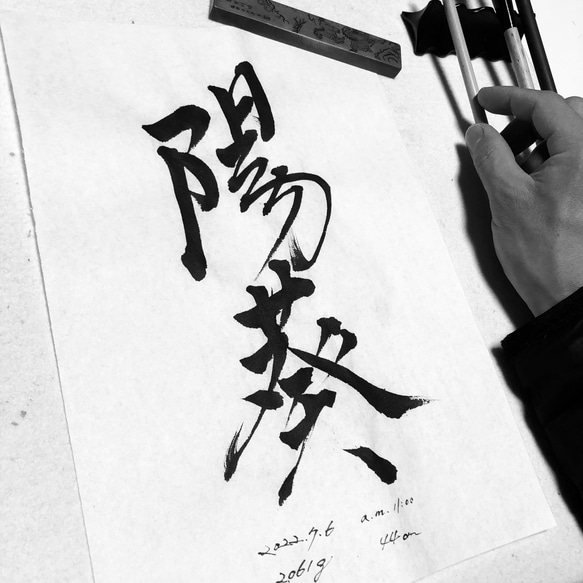 陽葵
2022.7.6 a.m.11:00
2061g 44cm